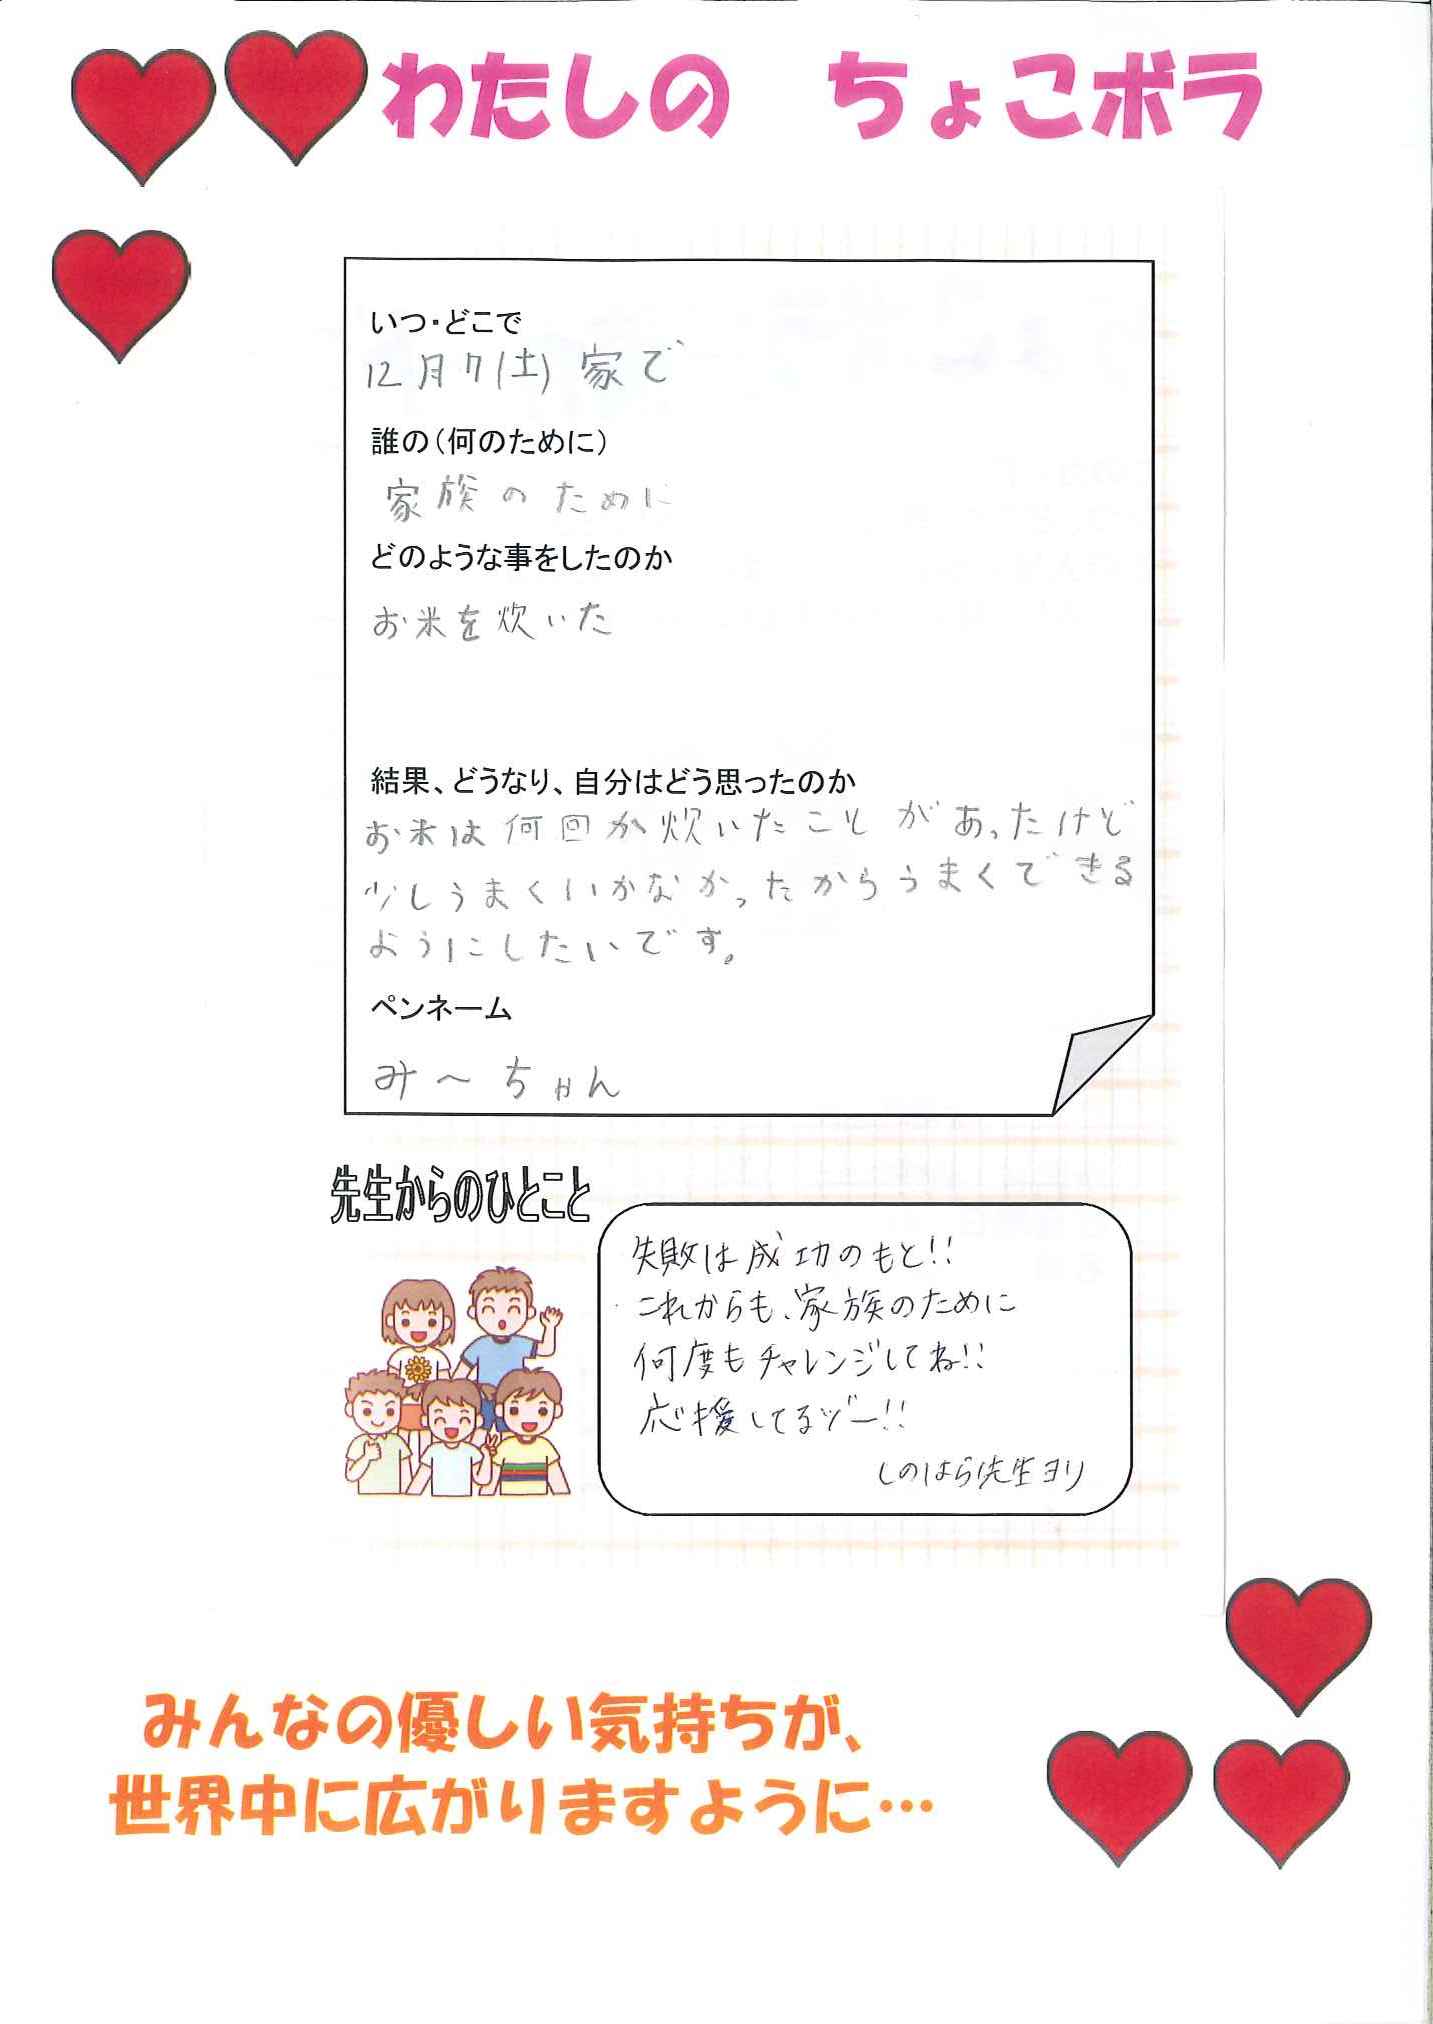 わたしの ちょこボラ
いつ・どこで
12月7(土) 家で
誰の(何のために)
家族のために
どのような事をしたのか
お米を炊いた
結果、どうなり、自分はどう思ったのか
お米は何回か炊いたことがあったけど
少しうまくいかなかったからうまくできる
ようにしたいです。
ペンネーム
み〜ちゃん
先生からのひとこと
失敗は成功のもと!!
これからも、家族のために
何度もチャレンジしてね!!
応援してるゾー!!
しのはら先生ヨリ
みんなの優しい気持ちが、
世界中に広がりますように…